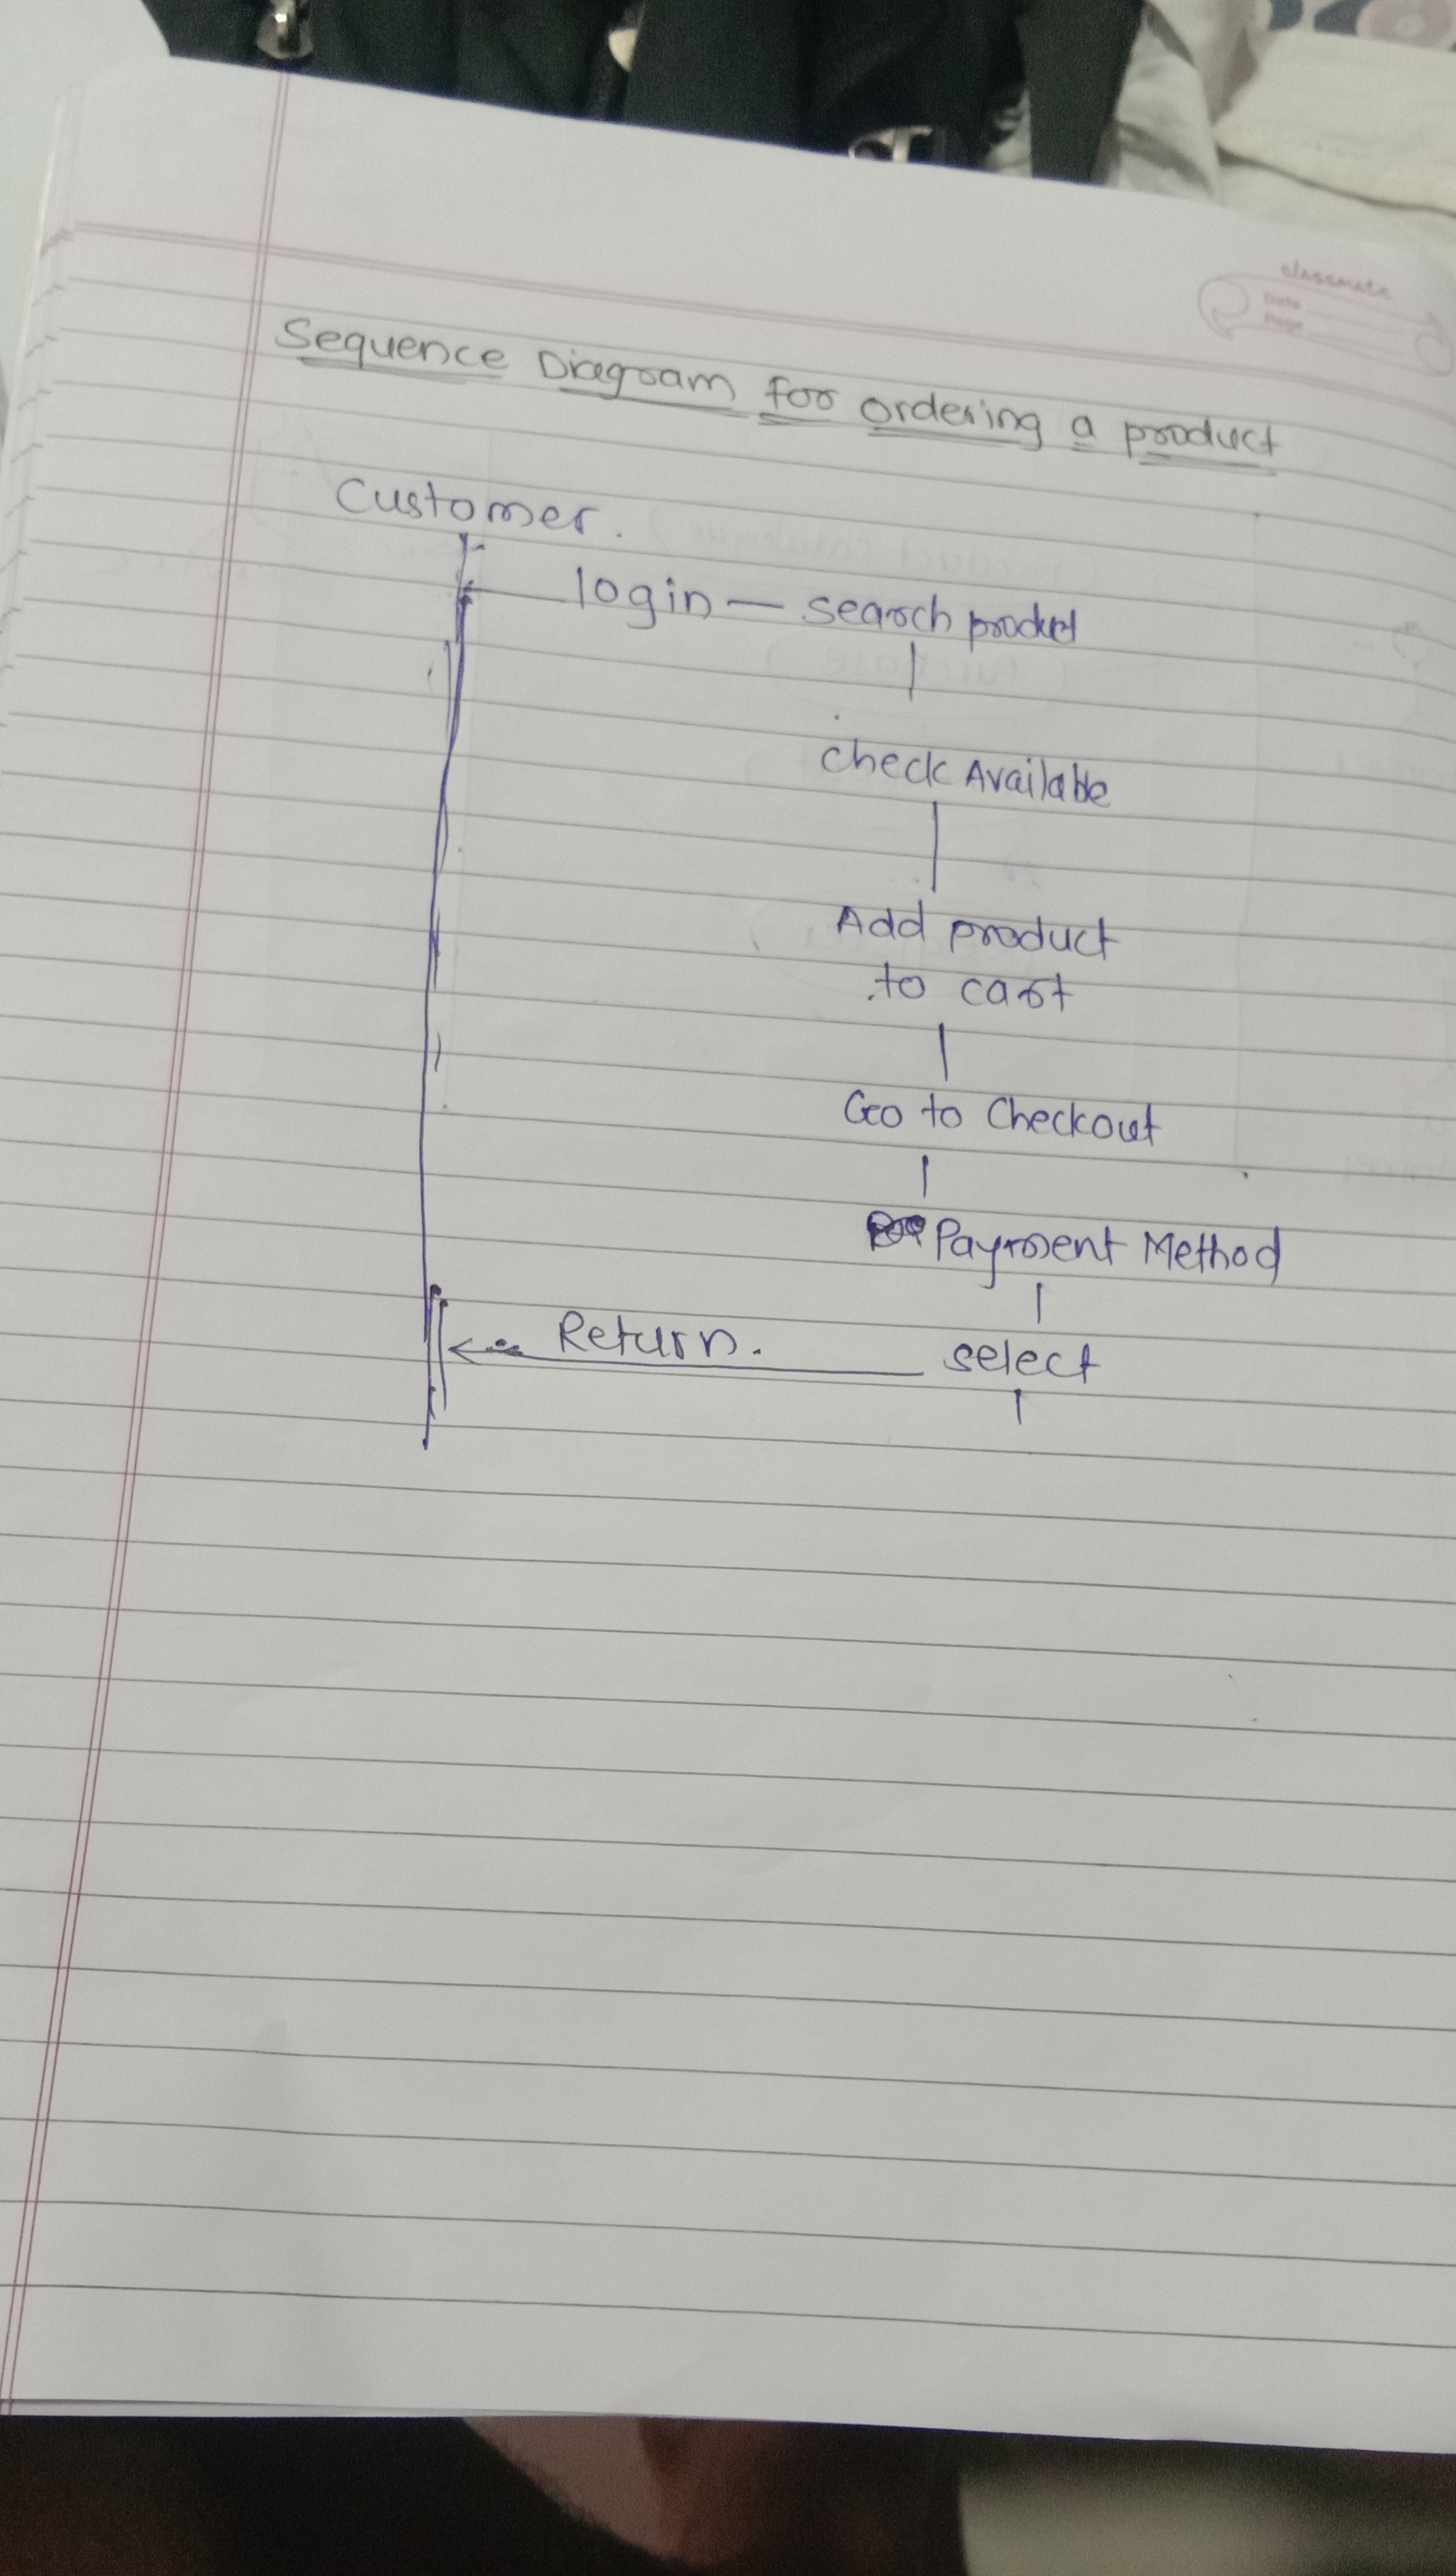 classmate
Date
Page
Sequence Diagram for ordering a product
Customer.
login — search product
check Available
Add product
to cart
Go to Checkout
Payment Method
Return. select